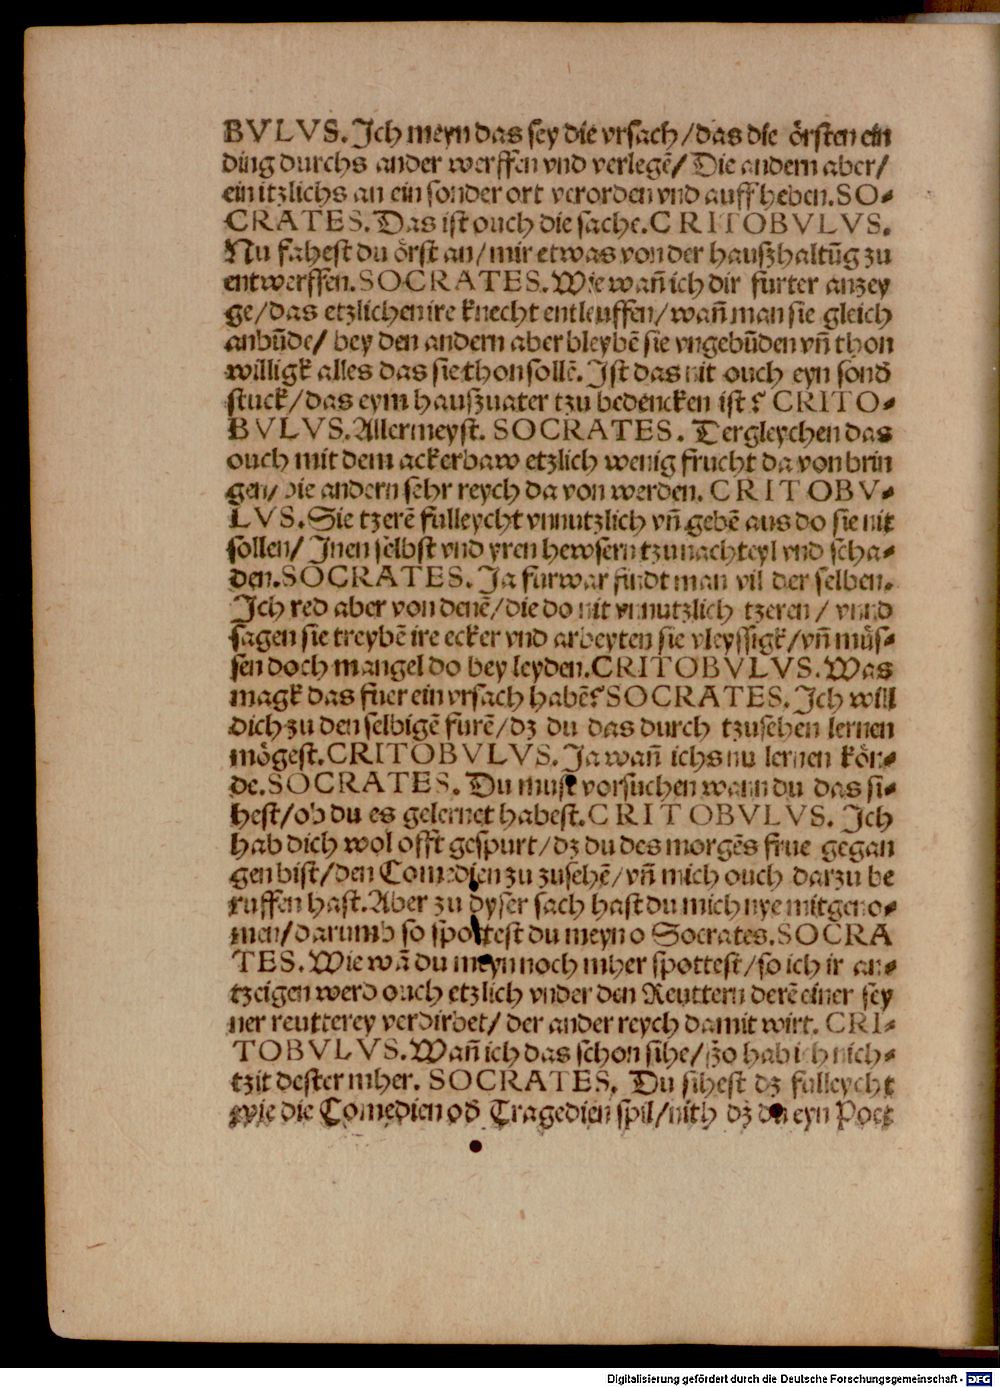 BVLVS. Jch meyn das sey die vrsach/das die örsten ein
ding durchs ander werffen vnd verlegē/ Die andern aber/
ein itzlichs an ein sonder ort verorden vnd auffheben. SO-
CRATES. Das ist ouch die sache. CRITOBVLVS.
Nu fahest du örst an/mir etwas von der haußhaltūg zu
entwerffen. SOCRATES. Wie wañ ich dir furter anzey
ge/das etzlichen ire knecht entleuffen/wañ man sie gleich
anbūde/ bey den andern aber bleybē sie vngebūden vñ thon
willigk alles das sie thon sollē. Jst das nit ouch eyn sonď
stuck/das eym haußuater tzu bedencken ist? CRITO-
BVLVS. Allermeyst. SOCRATES. Dergleychen das
ouch mit dem ackerbaw etzlich wenig frucht da von brin
gen/die andern sehr reych da von werden. CRITOBV-
LVS. Sie tzerē fulleycht vnnutzlich vñ gebē aus do sie nit
sollen/ Jnen selbst vnd yren hewsern tzu nachteyl vnd scha-
den. SOCRATES. Ja furwar findt man vil der selben.
Jch red aber von denē/die do nit vnnutzlich tzeren/ vnnd
sagen sie treybē ire ecker vnd arbeyten sie vleyssigk/vñ müs-
sen doch mangel do bey leyden. CRITOBVLVS. Was
magk das fuer ein vrsach habē? SOCRATES. Jch will
dich zu den selbigē furē/dz du das durch tzusehen lernen
mögest. CRITOBVLVS. Ja wañ ichs nu lernen kön-
de. SOCRATES. Du must vorsuchen wann du das si-
hest/ob du es gelernet habest. CRITOBVLVS. Jch
hab dich wol offt gespurt/dz du des morgēs frue gegan
gen bist/den Comedien zu zusehē/vñ mich ouch darzu be
ruffen hast. Aber zu dyser sach hast du mich nye mitgeno-
men/darumb so spottest du meyn o Socrates. SOCRA
TES. Wie wā du meyn noch mher spottest/so ich ir an-
tzeigen werd ouch etzlich vnder den Reuttern derē einer sey
ner reutterey verdirbet/ der ander reych damit wirt. CRI-
TOBVLVS. Wañ ich das schon sihe/ßo hab ich nich-
tzit dester mher. SOCRATES. Du sihest dz fulleycht
wie die Comedien oď Tragedien spil/nith dz du eyn Poet
Digitalisierung gefördert durch die Deutsche Forschungsgemeinschaft - DFG